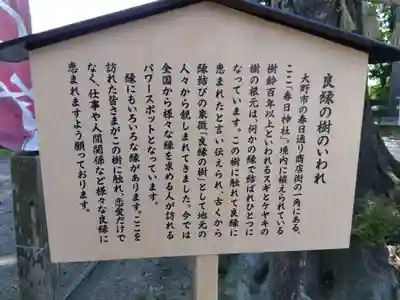 良縁の樹のいわれ
大野市の春日通り商店街の一角にある、
ここ「春日神社」境内に植えられている
樹齢百年以上といわれるスギとケヤキの
樹の根元は、何かの縁で結ばれひとつに
なっています。この樹に触れて良縁に
恵まれたと言い伝えられ、古くから
縁結びの象徴「良縁の樹」として地元の
人々から親しまれてきました。今では
全国から様々な縁を求める人が訪れる
パワースポットとなっています。
縁にもいろいろな縁があります。ここを
訪れた皆さまがこの樹に触れ、恋愛だけで
なく、仕事や人間関係など様々な良縁に
恵まれますよう願っております。